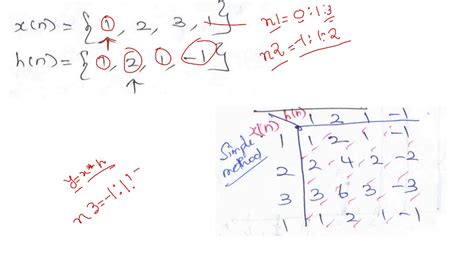 x(n) = { 1, 2, 3, 1 }
↑
n1 = 0:1:3
h(n) = { 1, 2, 1, -1 }
↑
n2 = -1:1:2
h(n)
x(n)
1 2 1 -1
1 1 2 1 -1
2 2 4 2 -2
3 3 6 3 -3
1 1 2 1 -1
Simple
method
y=x*h
n3=-1:1:-